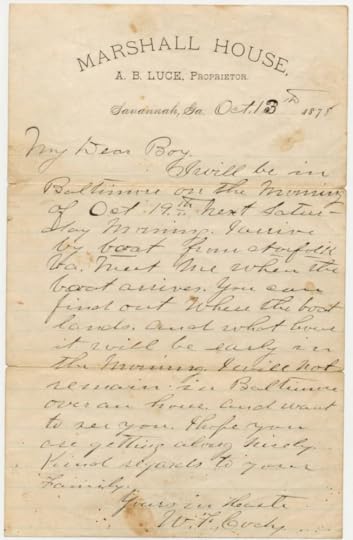 MARSHALL HOUSE,
A. B. LUCE, PROPRIETOR.
Savannah, Ga. Oct. 13th 1878
My Dear Boy.
I will be in
Baltimore on the Morning
of Oct 19th Next Satur-
day Morning. I arrive
by boat from Norfolk
Va. Meet Me when the
boat arrives. You can
find out Where the boat
lands. and what hour
it will be early in
the Morning. I will Not
remain in Baltimore
over an hour. and want
to see you. I hope you
are getting along nicely
Kind regards to your
Family.
Yours in haste
W. F. Cody